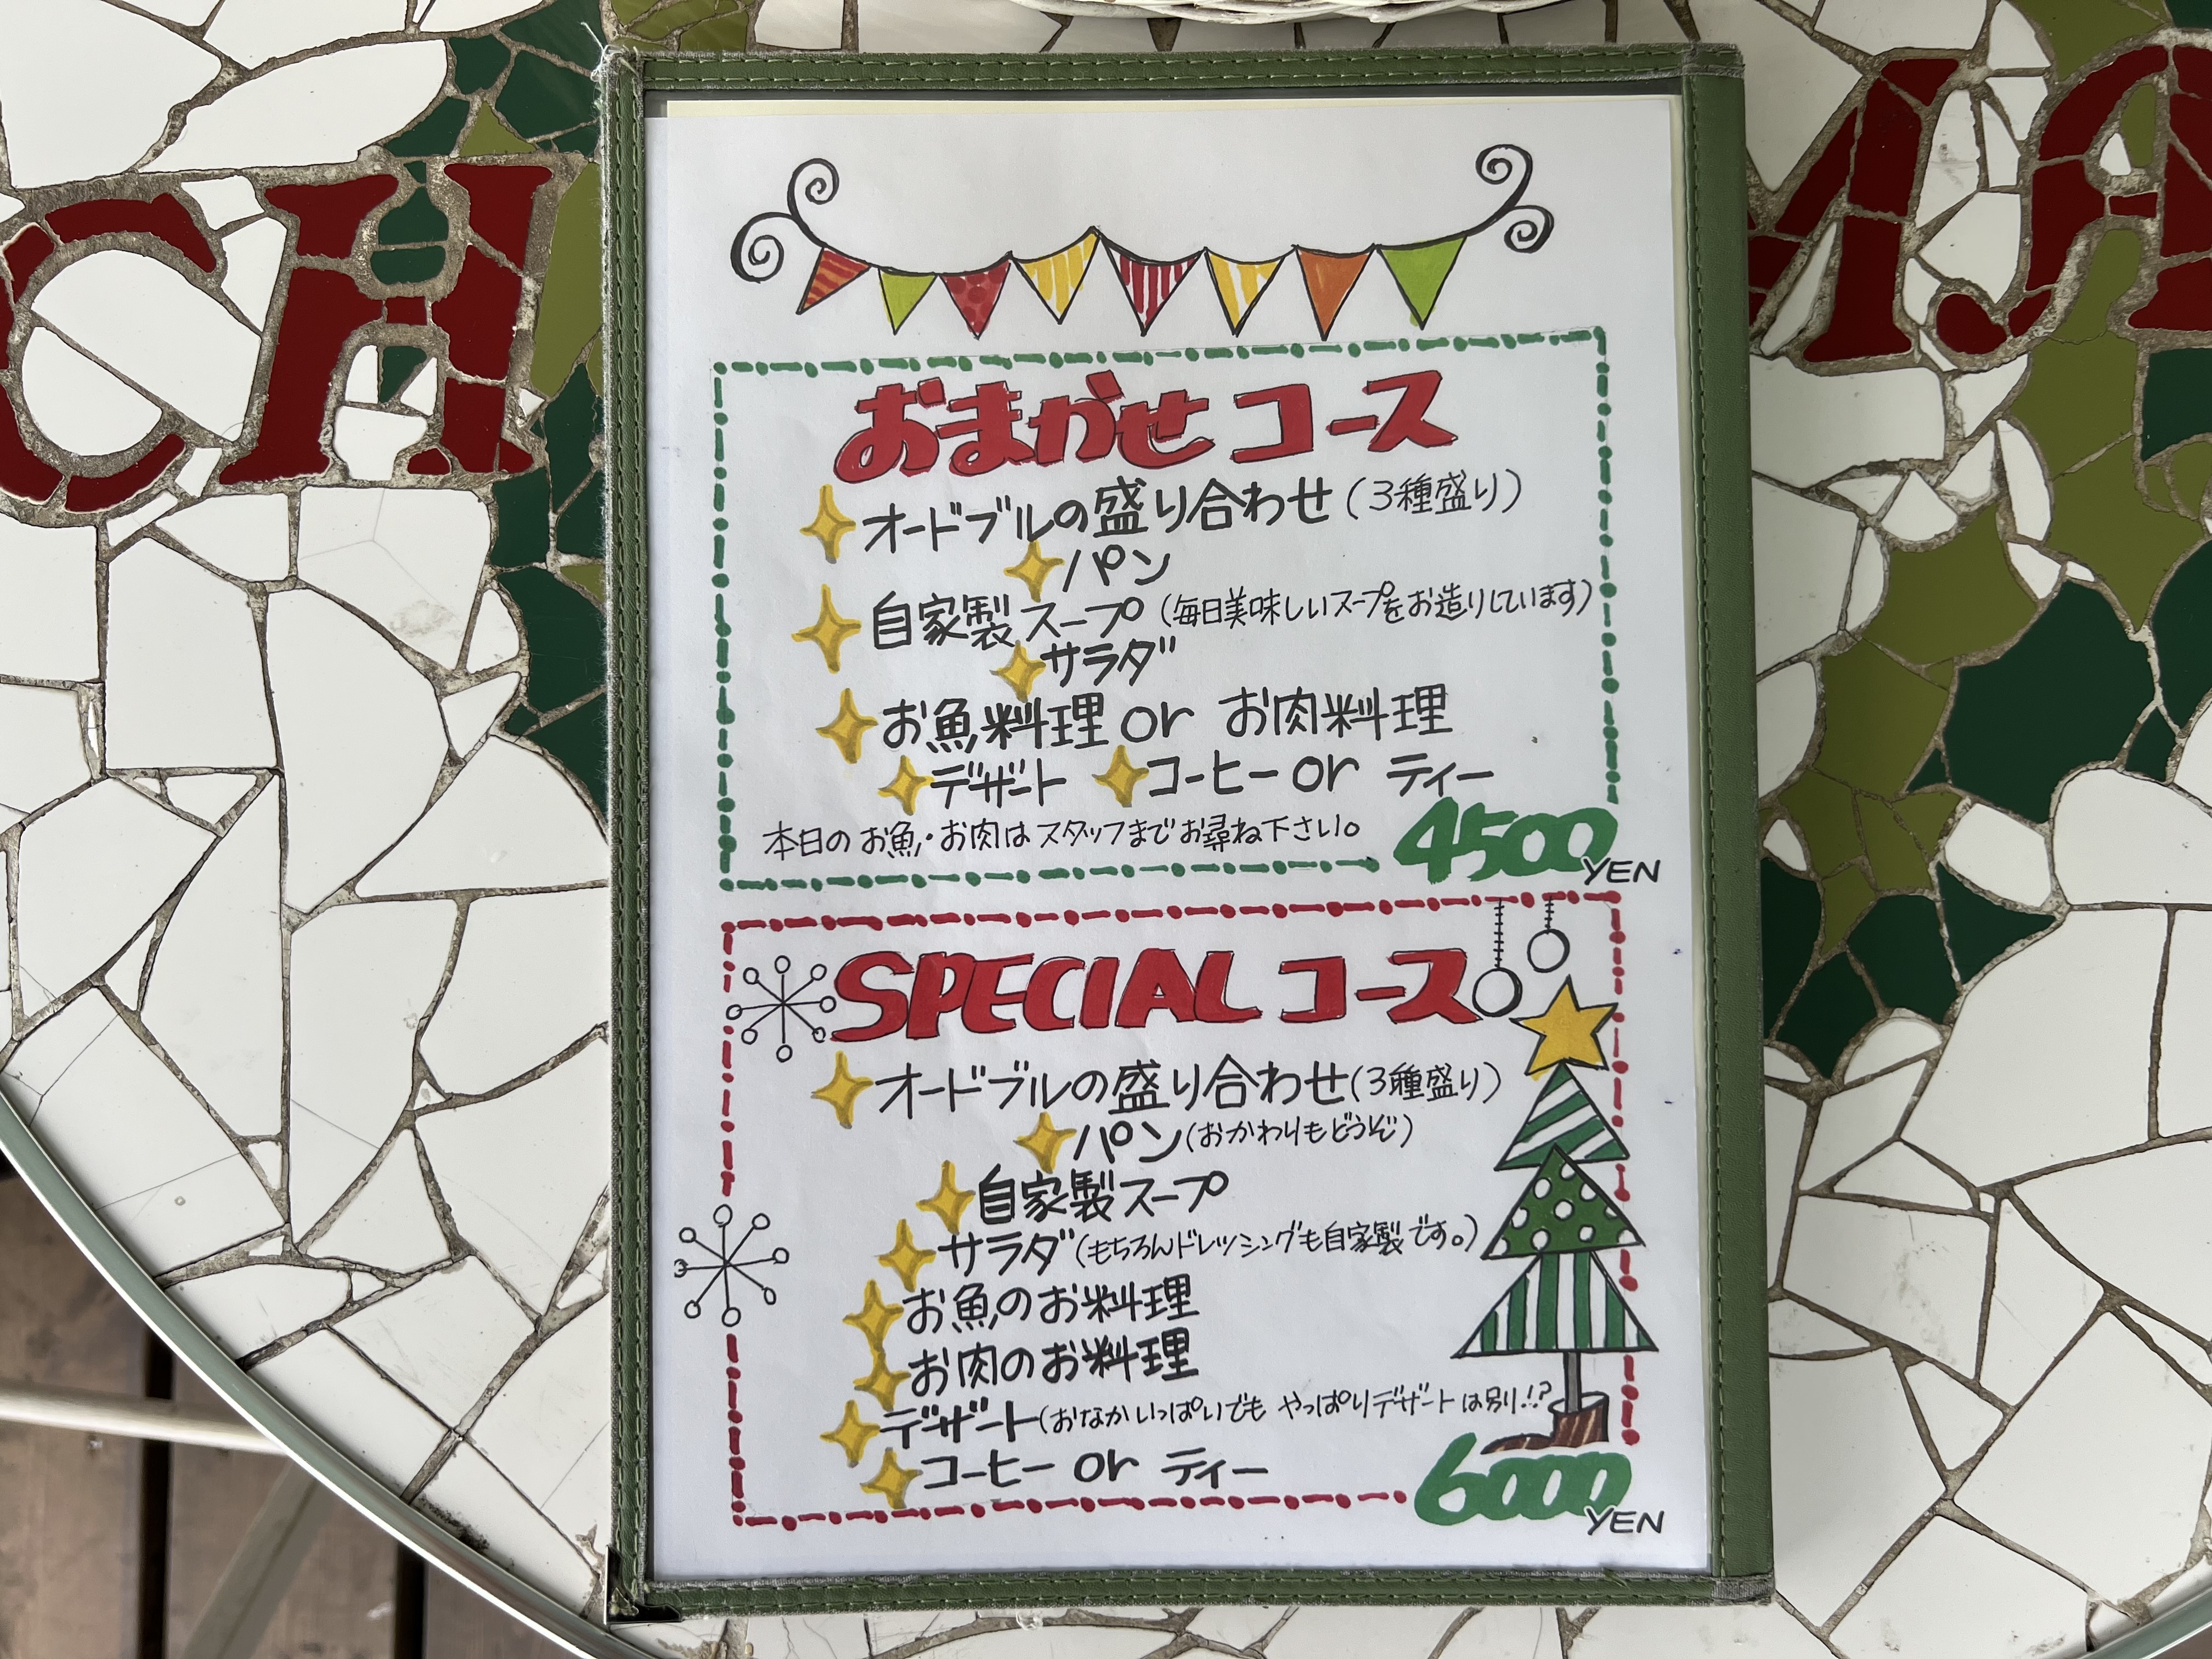 CH
MA
おまかせコース
オードブルの盛り合わせ(3種盛り)
パン
自家製スープ(毎日美味しいスープをお造りしています)
サラダ
お魚料理 or お肉料理
デザート コーヒー or ティー
本日のお魚・お肉はスタッフまでお尋ね下さい。
4500 YEN
SPECIAL コース
オードブルの盛り合わせ(3種盛り)
パン(おかわりもどうぞ)
自家製スープ
サラダ(もちろんドレッシングも自家製です。)
お魚のお料理
お肉のお料理
デザート(おなかいっぱいでも やっぱりデザートは別!?
コーヒー or ティー
6000 YEN